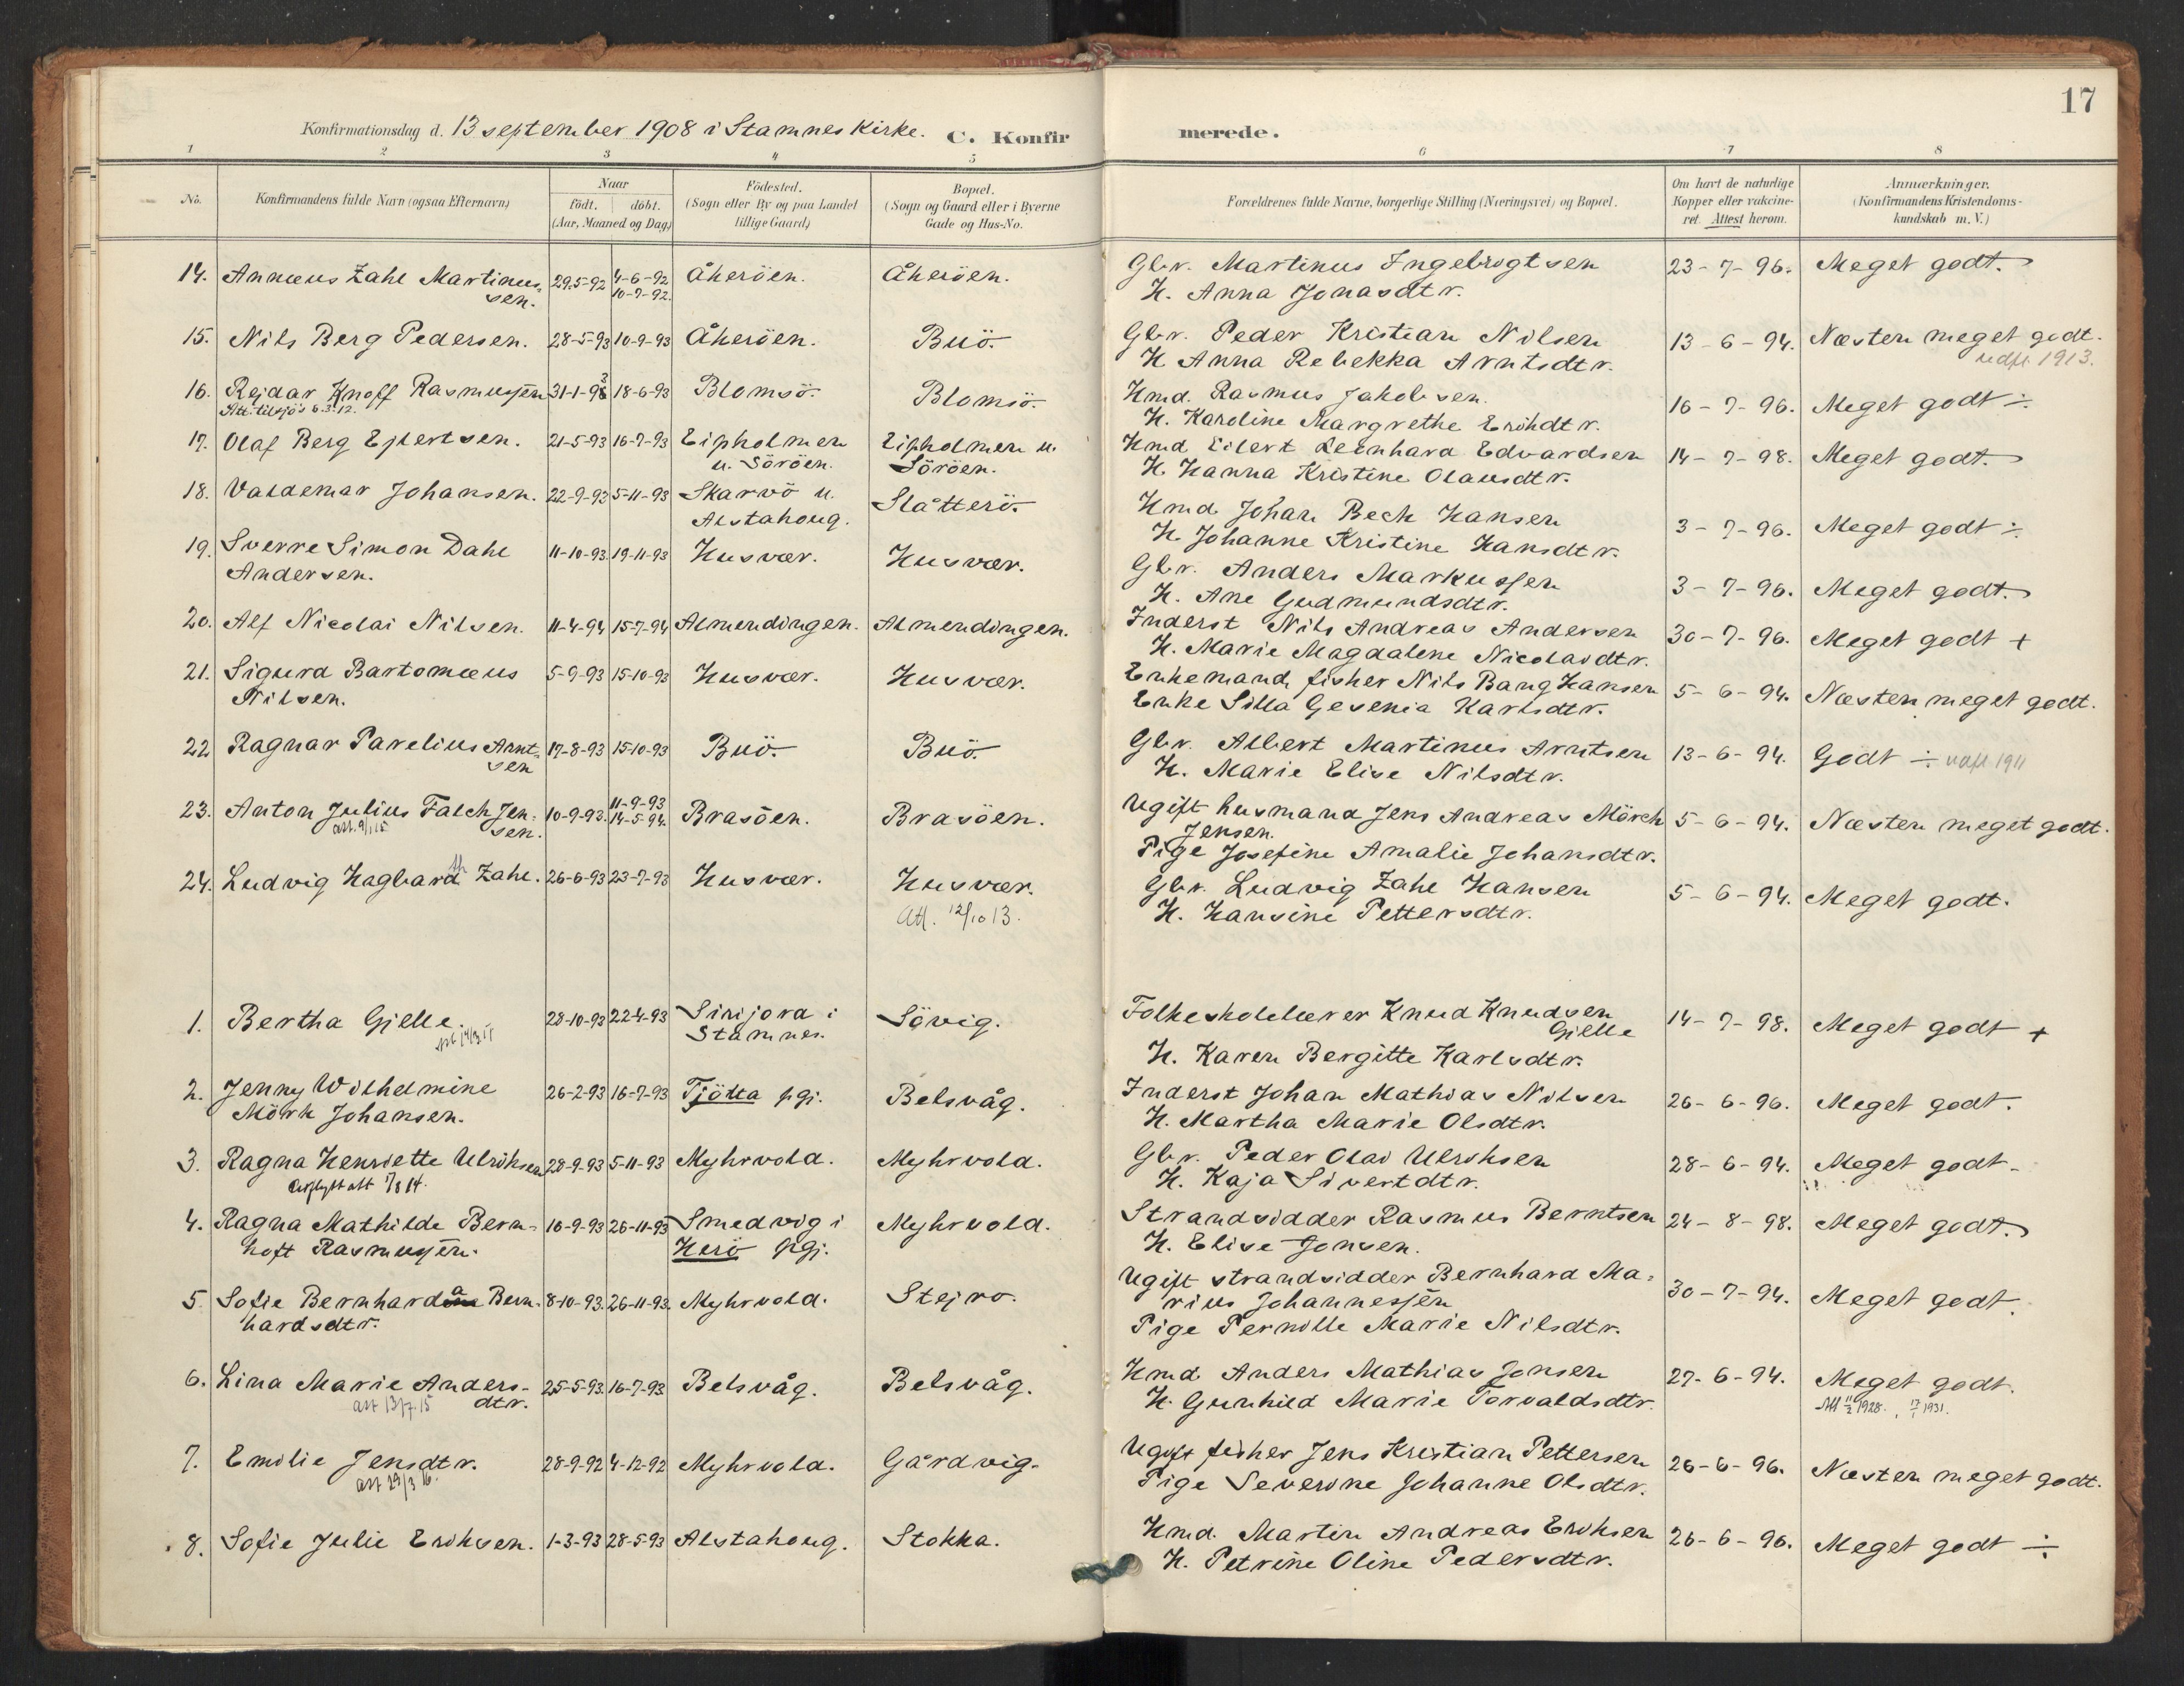 17
Konfirmationsdag d. 13 september 1908 i Stamnes Kirke. C. Konfir merede.
1 2 3 4 5 6 7 8
No. Konfirmandens fulde Navn (ogsaa Efternavn) Naar født. døbt. (Aar, Maaned og Dag) Fødested. (Sogn eller By og paa Landet tillige Gaard) Bopæl. (Sogn og Gaard eller i Byerne Gade og Hus-No. Forældrenes fulde Navne, borgerlige Stilling (Næringsvei) og Bopæl. Om havt de naturlige Kopper eller vakcineret. Attest herom. Anmærkninger. (Konfirmandens Kristendomskundskab m. V.)
14. Annæus Zahl Martinus= 29.5-92 4-6-92 Åkerøen. Åkerøen. Gbr. Martinus Ingebrogtsen 23-7-96. Meget godt.
sen. 10-7-92. H. Anna Jonasdtr.
15. Nils Berg Pedersen. 28-5-93 10-9-93 Åkerøen. Buö. Gbr. Peder Kristian Nilsen 13-6-94. Næsten meget godt.
H Anna Rebekka Arntsdtr. 1913.
16. Rejdar Knoff Rasmussen 31-1-93 18-6-93 Blomsö. Blomsö. Hmd. Rasmus Jakobsen. 16-7-96. Meget godt ÷
Att. til sjös 6.3.12. H. Karoline Margrethe Erikdtr.
17. Olaf Berg Ejlertsen. 21-5-93 16-7-93 Eipholmen Eipholmen u. Hmd Eilert Leonhard Edvardsen 14-7-98. Meget godt.
u. Söröen. Söröen. H. Hanna Kristine Olausdtr.
18. Valdemar Johansen. 22-9-93 5-11-93 Skarvö u. Slåtterö. Hmd. Johan Bech Hansen 3-7-96. Meget godt ÷
Alstahoug. H. Johanne Kristine Hansdtr.
19. Sverre Simon Dahl 11-10-93 19-11-93 Husvær. Husvær. Gbr. Anders Markussen 3-7-96. Meget godt.
Andersen. H. Ane Gudmundsdtr.
20. Alf Nicolai Nilsen. 11-4-94 15-7-94 Almendingen. Almendingen. Inderst Nils Andreas Andersen 30-7-96. Meget godt +
H. Marie Magdalene Nicolaidtr.
21. Sigurd Bartomæus 5-9-93 15-10-93 Husvær. Husvær. Enkemand, fisker Nils Bang Hansen 5-6-94. Næsten meget godt.
Nilsen. Enke Silla Gesenia Karlsdtr.
22 Ragnar Parelius Arnt= 17-8-93 15-10-93 Buö. Buö. Gbr. Albert Martinus Arntsen 13-6-94. Godt ÷ 1911
sen H. Marie Elise Nilsdtr.
23. Anton Julius Falch Jen= 10-9-93. 11-9-93 Brasöen. Brasöen. Ugift husmand Jens Andreas Mörch 5-6-94. Næsten meget godt.
sen. 14-5-94. Jensen.
Pige Josefine Amalie Johansdtr.
24. Ludvig Hagbard Zahl. 26-6-93 23-7-93 Husvær. Husvær. Gbr. Ludvig Zahl Hansen 5-6-94. Meget godt.
Att. 12/10 13. H. Hansine Pettersdtr.
1. Bertha Gjelle. 28-10-93 22-4-93 Sinijora i Sövig. Folkeskolelærer Knud Knudsen 14-7-98. Meget godt +
Stamnes. Gjelle
H. Karen Bergitte Karlsdtr.
2. Jenny Wilhelmine 26-2-93 16-7-93 Tjötta pgj. Belsvåg. Inderst Johan Mathias Nilsen 26-6-96. Meget godt.
Mörk Johansen. H. Martha Marie Olsdtr.
3. Ragna Henriette Ulriksen 28-9-93 5-11-93 Myhrvold. Myhrvold. Gbr. Peder Olai Ulriksen 28-6-94. Meget godt.
H. Kaja Sivertdtr.
4. Ragna Mathilde Bern- 16-9-93 26-11-93 Smedvig i Myhrvold. Strandsidder Rasmus Berntsen 24-8-98. Meget godt.
hoft Rasmussen. Herö pgj. H. Elise Jonsen.
5. Sofie Bernharda Bern- 8-10-93. 26-11-93. Myhrvold. Stejro. Ugift strandsidder Bernhard Ma= 30-7-94. Meget godt.
hardsdtr. rius Johannessen
Pige Pernille Marie Nilsdtr.
6. Lina Marie Anders- 25-5-93. 16-7-93 Belsvåg. Belsvåg. Hmd Anders Mathias Jonsen 27-6-94. Meget godt.
dtr. att 13/7.15 H. Gunhild Marie Torvaldsdtr. Att 11/2 1928. 17/1 1931.
7. Emilie Jensdtr. 28-9-92 4-12-92 Myhrvold. Gårdvig. Ugift fisker Jens Kristian Pettersen 26-6-96. Næsten meget godt.
att 29/3 16. Pige Severine Johanne Olsdtr.
8. Sofie Julie Eriksen. 1-3-93 28-5-93 Alstahoug. Stokka. Hmd. Martin Andreas Eriksen 26-6-96. Meget godt ÷
H. Petrine Oline Pedersdtr.